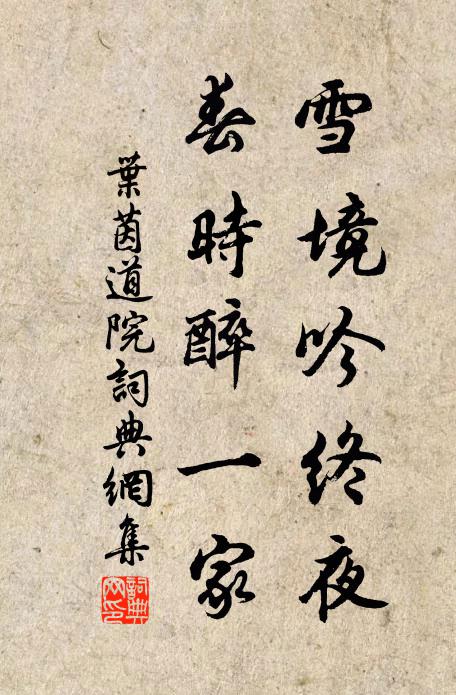 雪境吟終夜
春時醉一家
葉茵道院詞典網集
詞典网印